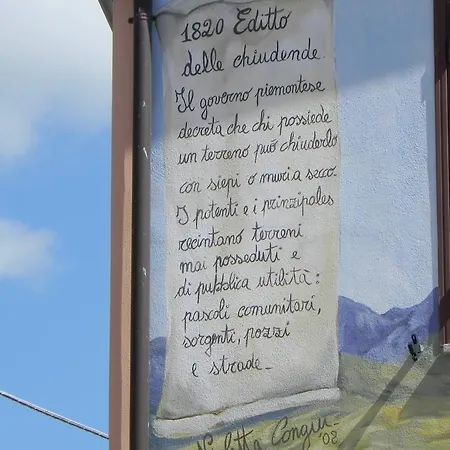 1820 Editto
delle chiudende.
Il governo piemontese
decreta che chi possiede
un terreno può chiuderlo
con siepi o muri a secco
I potenti e i prinzipales
recintano terreni
mai posseduti e
di pubblica utilità:
pascoli comunitari,
sorgenti, pozzi
e strade_
Congiu_
'08